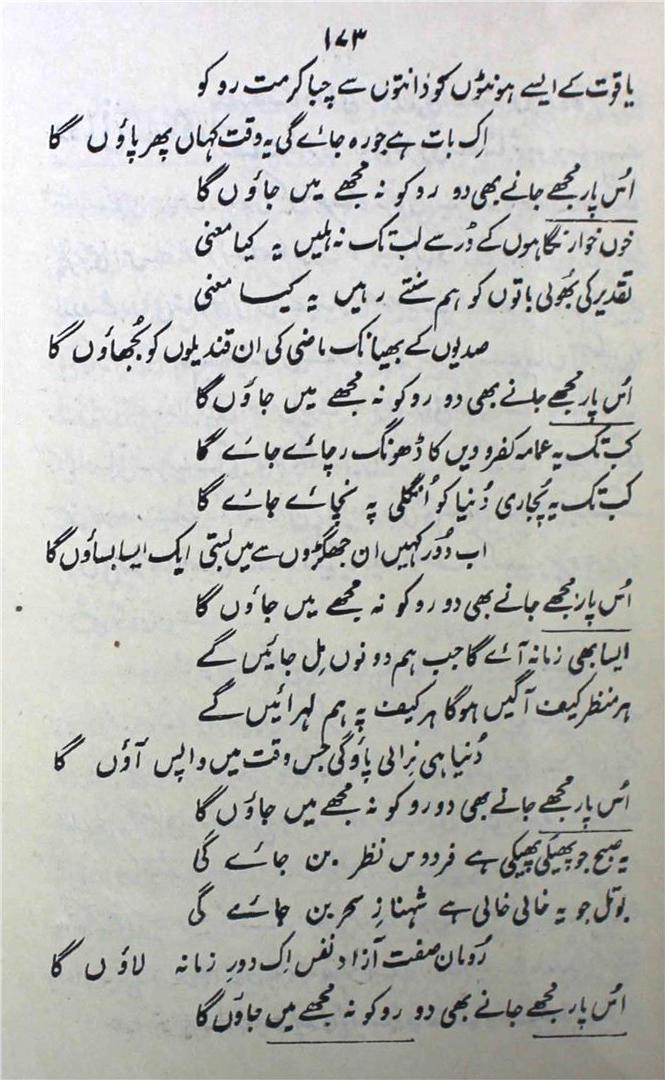 ۱۷۳
یاقوت کے ایسے ہونٹوں کو دانتوں سے چبا کر مت روکو
اِک بات ہے جو رہ جائے گی یہ وقت کہاں پھر پاؤں گا
اُس پار مجھے جانے بھی دو روکو نہ مجھے میں جاؤں گا
خوں خوار نگاہوں کے ڈر سے لب تک نہ ہلیں یہ کیا معنی
تقدیر کی جھوٹی باتوں کو ہم سنتے رہیں یہ کیسا معنی
صدیوں کے بھیانک ماضی کی ان قندیلوں کو بُجھاؤں گا
اُس پار مجھے جانے بھی دو روکو نہ مجھے میں جاؤں گا
کب تک یہ عمامہ کفر و دیں کا ڈھونگ رچائے جائے گا
کب تک یہ پُجاری دُنیا کو اُنگلی پہ نچائے جائے گا
اب دُور کہیں ان جھگڑوں سے میں بستی ایک ایسا بساؤں گا
اُس پار مجھے جانے بھی دو روکو نہ مجھے میں جاؤں گا
ایسا بھی زمانہ آئے گا جب ہم دونوں مِل جائیں گے
ہر منظر کیف آگیں ہوگا ہر کیف پہ ہم لہرائیں گے
دُنیا ہی نِرالی پاؤگی جس وقت میں واپس آؤں گا
اُس پار مجھے جانے بھی دو روکو نہ مجھے میں جاؤں گا
یہ صبح جو پھیکی پھیکی ہے فردوس نظر بن جائے گی
بوتل جو یہ خالی خالی ہے شہنازِ سحر بن جائے گی
رُومان صفت آزاد نفس اِک دورِ زمانہ لاؤں گا
اُس پار مجھے جانے بھی دو روکو نہ مجھے میں جاؤں گا